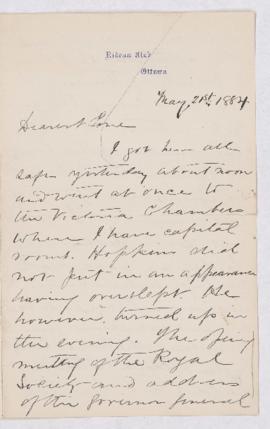 Rideau Club
Ottawa
May 21st 1884
Dearest
I got here all
safe yesterday about noon
and went at once to
the Victoria Chambers
where I have capital
rooms. Hopkins did
not put in an appearance
having overslept. He
however, turned up in
the evening. The
meeting of the Royal
Society and address
of the Governor General